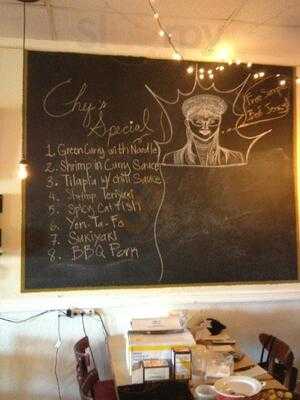 Chef's
Special
1. Green Curry with Noodle
2. Shrimp in Curry Sauce
3. Tilapia w/ chili Sauce
4. Shrimp Teriyaki
5. Spicy Catfish
6. Yen-Ta-Fo
7. Sukiyaki
8. BBQ Pork
Free Smile
Best Service